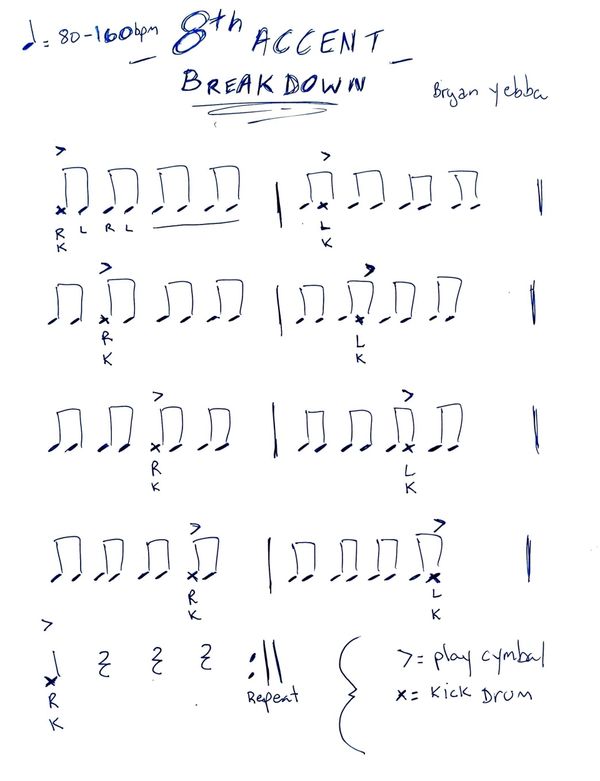 ♩= 80-160bpm 8th ACCENT
BREAKDOWN
Bryan Yebba
> >
R L R L L
K K
> >
R L
K K
> >
R L
K K
> >
R L
K K
>
R
K
Repeat
>= play cymbal
x= Kick Drum